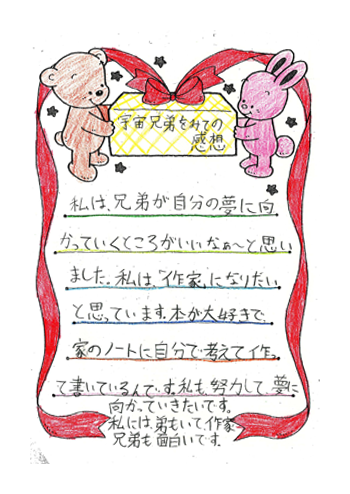 宇宙兄弟をみての
感想
私は、兄弟が自分の夢に向
かっていくところがいいなぁ〜と思い
ました。私は、「作家」になりたい
と思っています。本が大好きで、
家のノートに自分で考えて作っ
て書いているんです。私も、努力して、夢に
向かっていきたいです。
私には弟もいて作家
兄弟も面白いです。